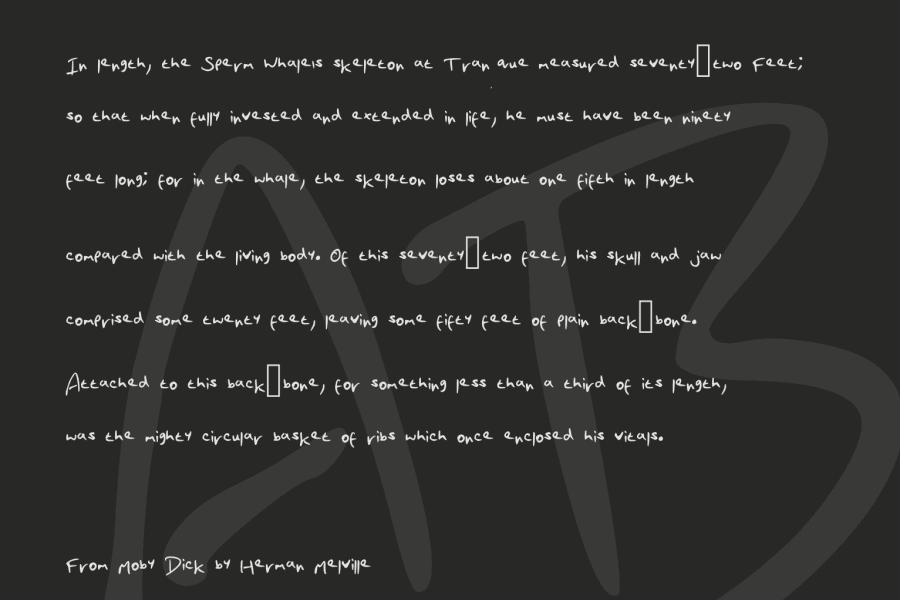 In length, the Sperm Whale's skeleton at Tran que measured seventy▯two Feet;
so that when fully invested and extended in life, he must have been ninety
feet long; for in the whale, the skeleton loses about one fifth in length
compared with the living body. Of this seventy▯two feet, his skull and jaw
comprised some twenty feet, leaving some fifty feet of plain back▯bone.
Attached to this back▯bone, for something less than a third of its length,
was the mighty circular basket of ribs which once enclosed his vitals.
From Moby Dick by Herman Melville